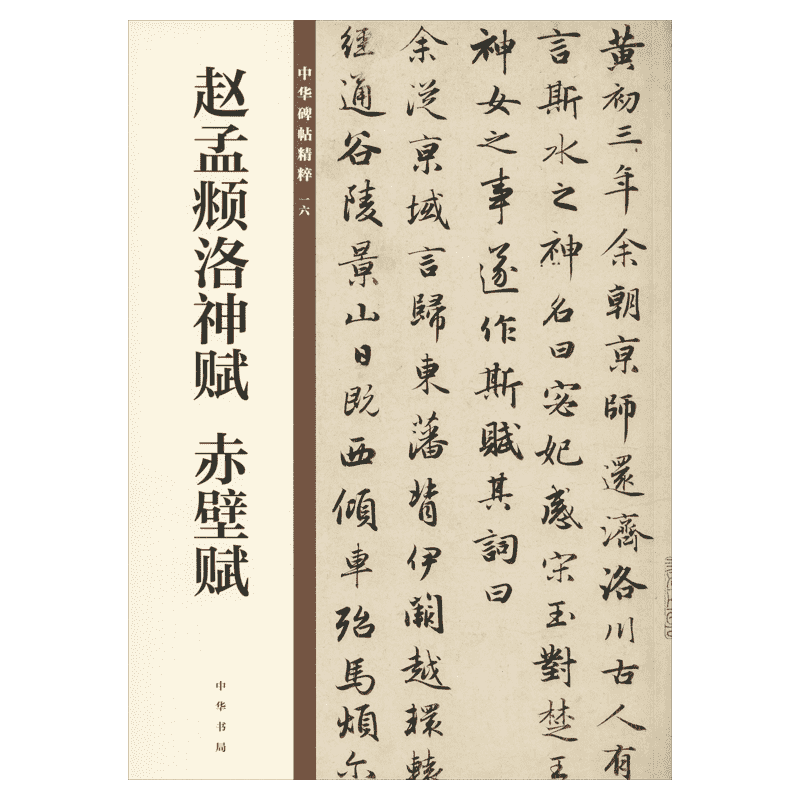 赵孟𫖯洛神赋 赤壁赋
中华书局
中华碑帖精粹 一六
黃初三年余朝京師還濟洛川古人有
言斯水之神名曰宓妃感宋玉對楚王
神女之事遂作斯賦其詞曰
余從京域言歸東藩背伊闕越轘轅
經通谷陵景山日既西傾車殆馬煩尒